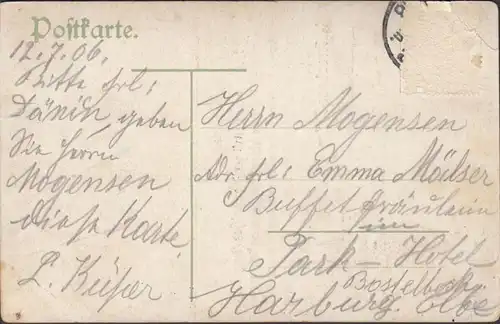 Postkarte.
12.7.06.
Bitte frl:
Dänin, geben
Sie Herrn
Mogensen
diese Karte
L. Küper
Herrn Mogensen
Adr. frl: Emma Mälser
Buffetfräulein
im
Park-Hotel
Bostelbeck.
Harburg. Elbe